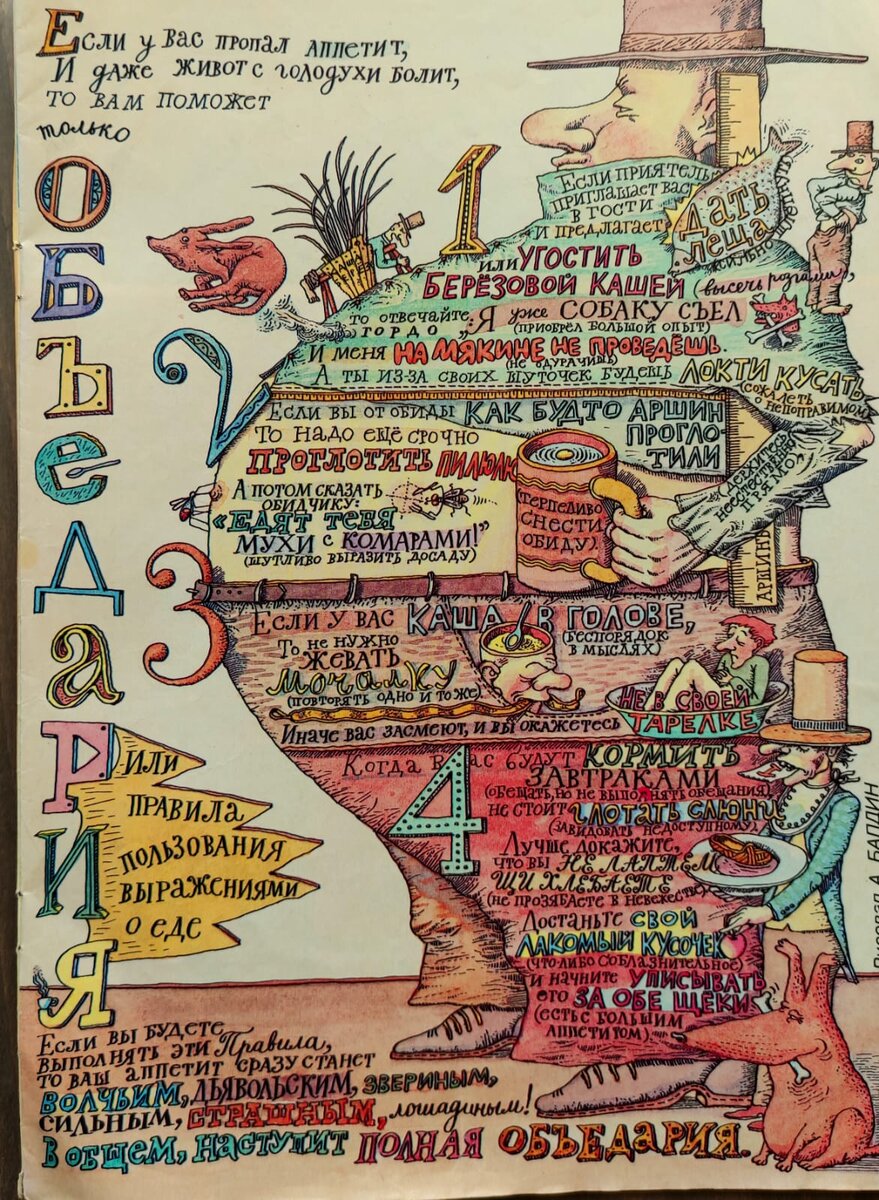 Если у вас пропал аппетит,
И даже живот с голодухи болит,
то вам поможет
только
ОБЪЕДАРИЯ
или
правила
пользования
выражениями
о еде
1
Если приятель
приглашает вас
в гости
и предлагает
дать
леща
(сильно
или угостить
берёзовой кашей (высечь розгами),
то отвечайте
гордо „Я уже собаку съел
(приобрёл большой опыт)
и меня на мякине не проведёшь.
(не одурачишь)
А ты из-за своих шуточек будешь локти кусать
(сожалеть
о непоправимом)
2
Если вы от обиды как будто аршин
прогло-
тили
(держитесь
неестественно
прямо)
То надо ещё срочно
проглотить пилюлю
(терпеливо
снести
обиду)
А потом сказать
обидчику:
«Едят тебя
мухи с комарами!”
(шутливо выразить досаду)
аршинъ
3
Если у вас каша в голове,
(беспорядок
в мыслях)
То не нужно
жевать
мочалку
(повторять одно и то же).
Иначе вас засмеют, и вы окажетесь
не в своей
тарелке
4
Когда вас будут кормить
завтраками
(обещать, но не выполнять обещания)
не стоит глотать слюни
(завидовать недоступному)
Лучше докажите,
что вы не лаптем
щи хлебаете
(не прозябаете в невежестве).
Достаньте свой
лакомый кусочек
(что-либо соблазнительное)
и начните уписывать
его за обе щёки
(есть с большим
аппетитом).
Рисовал А БАЛДИН
Если вы будете
выполнять эти Правила,
то ваш аппетит сразу станет
волчьим, дьявольским, звериным,
сильным, страшным, лошадиным!
В общем, наступит полная объедария.